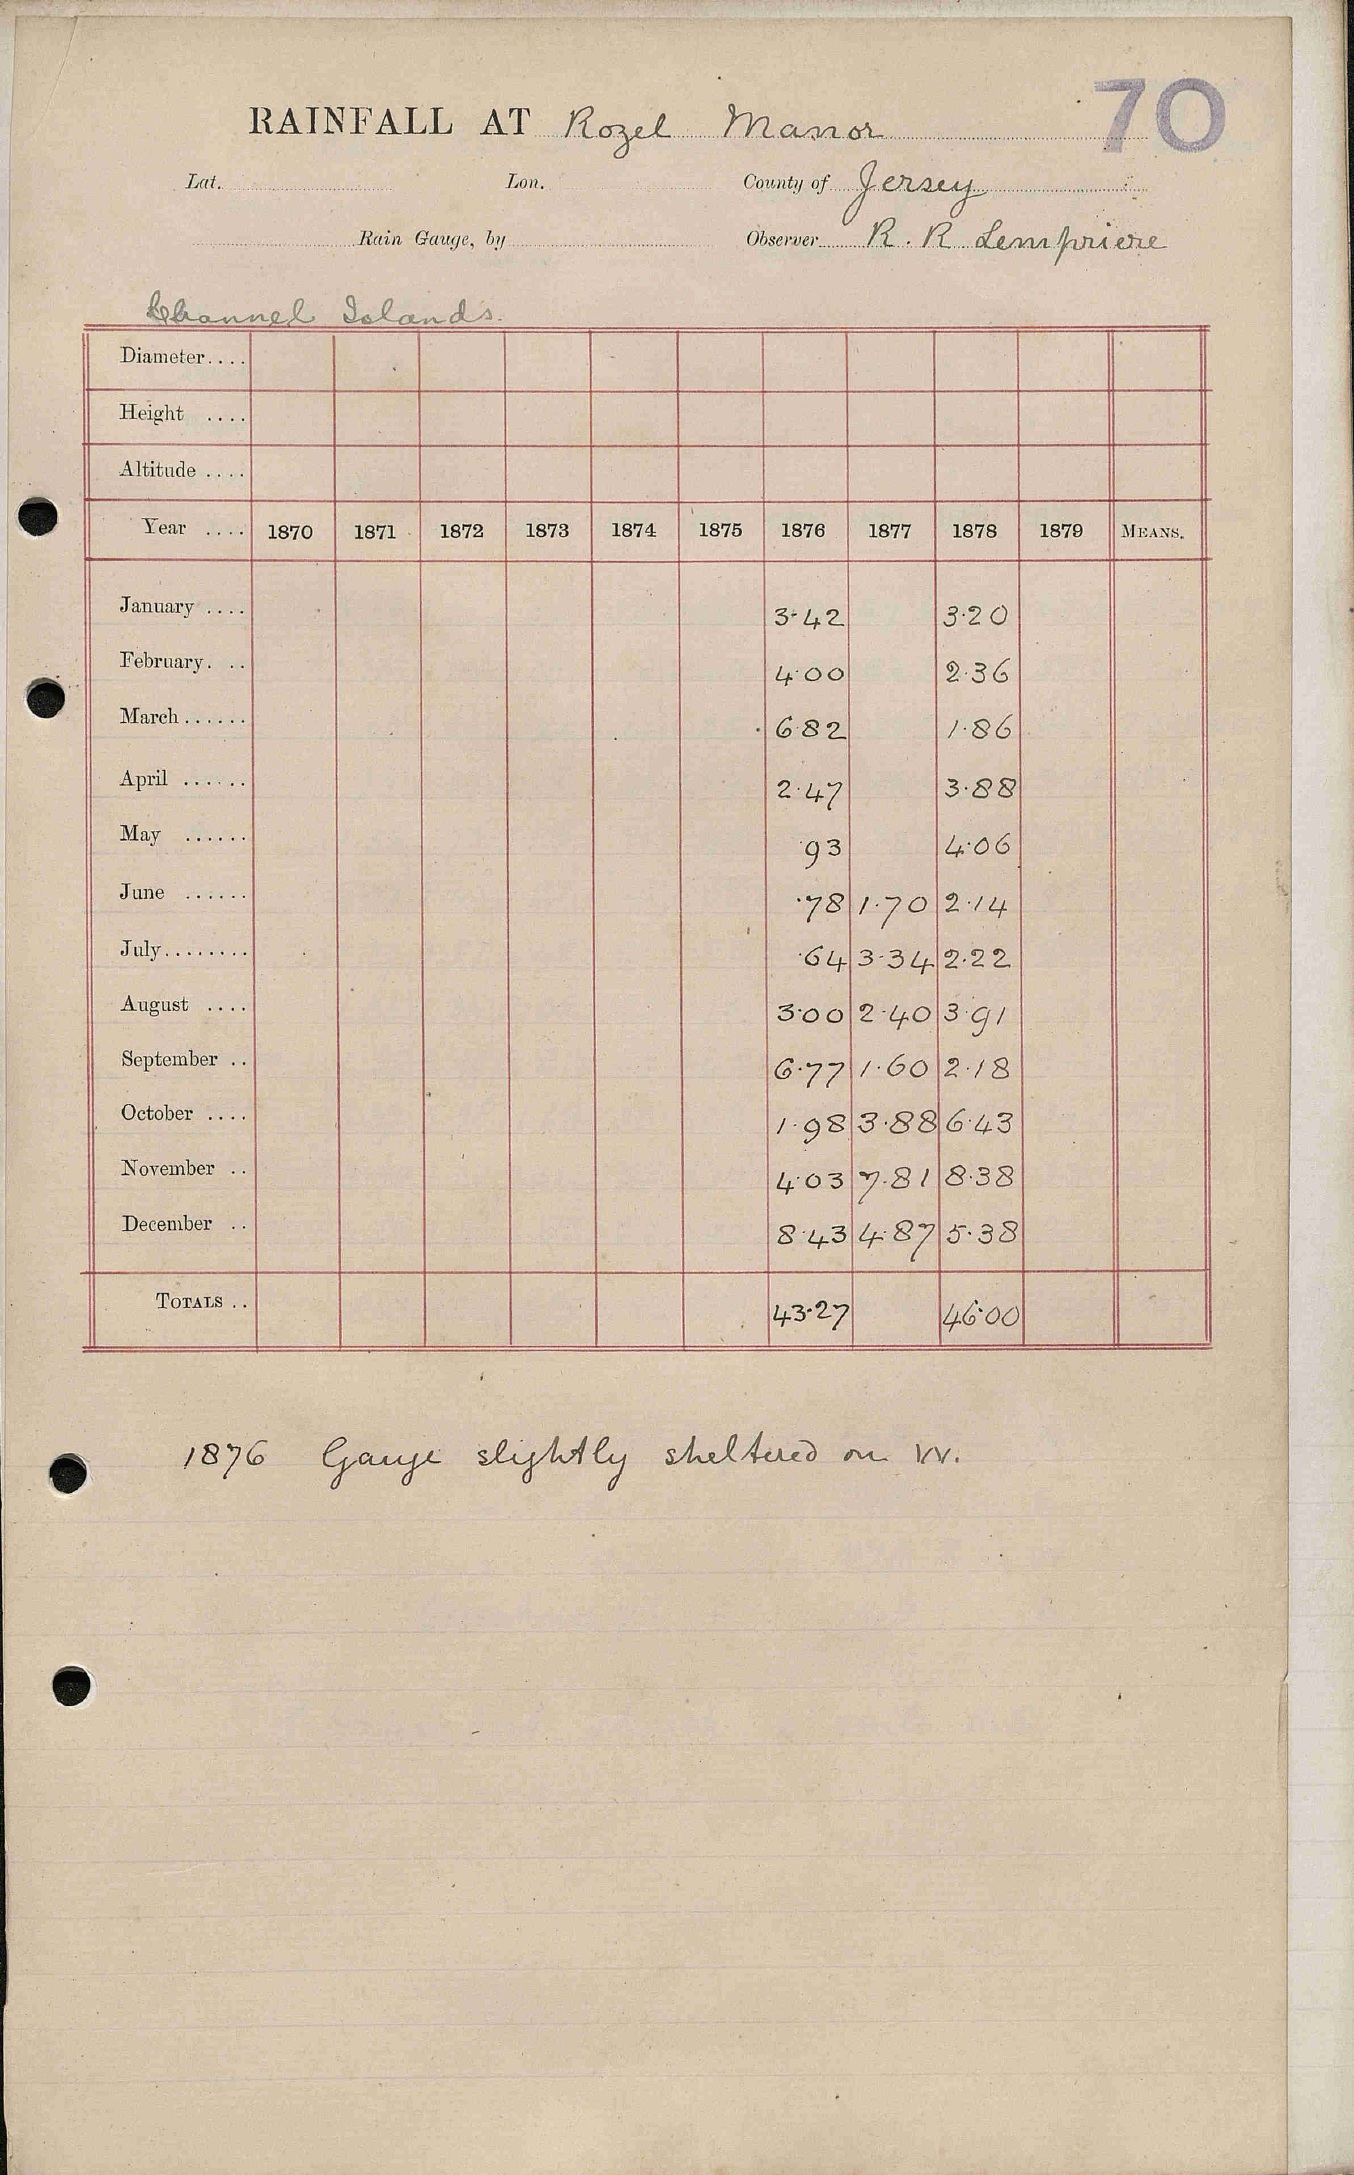 70
RAINFALL AT Rozel Manor
Lat. Lon. County of Jersey
Rain Gauge, by Observer R. R Lempriere
Channel Islands.
Diameter....
Height ....
Altitude ....
Year .... 1870 1871 1872 1873 1874 1875 1876 1877 1878 1879 MEANS.
January .... 3·42 3·20
February. .. 4·00 2·36
March...... 6·82 1·86
April ...... 2·47 3·88
May ...... ·93 4·06
June ...... ·78 1·70 2·14
July........ ·64 3·34 2·22
August .... 3·00 2·40 3·91
September .. 6·77 1·60 2·18
October .... 1·98 3·88 6·43
November .. 4·03 7·81 8·38
December .. 8·43 4·87 5·38
TOTALS .. 43·27 46·00
1876 Gauge slightly sheltered on W.